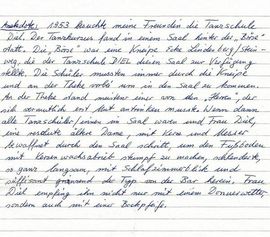 Anekdote: 1953 besuchte meine Freundin die Tanzschule
Diel. Der Tanzkurs fand in einem Saal hinter der „Börse"
statt. Die „Börse" war eine Kneipe Ecke Lindenberg/Stein-
weg, die der Tanzschule DIEL deren Saal zur Verfügung
stellte. Die Schüler mussten immer durch die Kneipe
und an der Theke vorbei um in den Saal zu kommen.
An der Theke stand meistens einer von den „Herren", der
sich vermutlich erst Mut antrinken musste. Wenn dann
alle Tanzschüler/innen im Saal waren und Frau Diel,
eine resolute ältere Dame, mit Kerze und Messer
bewaffnet durch den Saal schritt, um den Fußboden
mit Kerzenwachsabrieb stumpf zu machen, schlenderte,
so ganz langsam, mit Schlafzimmerblick und
süffisant grinsend die Typen von der Bar herein. Frau
Diel empfing ihn nicht nur mit einem Donnerwetter,
sondern auch mit einer Backpfeife.